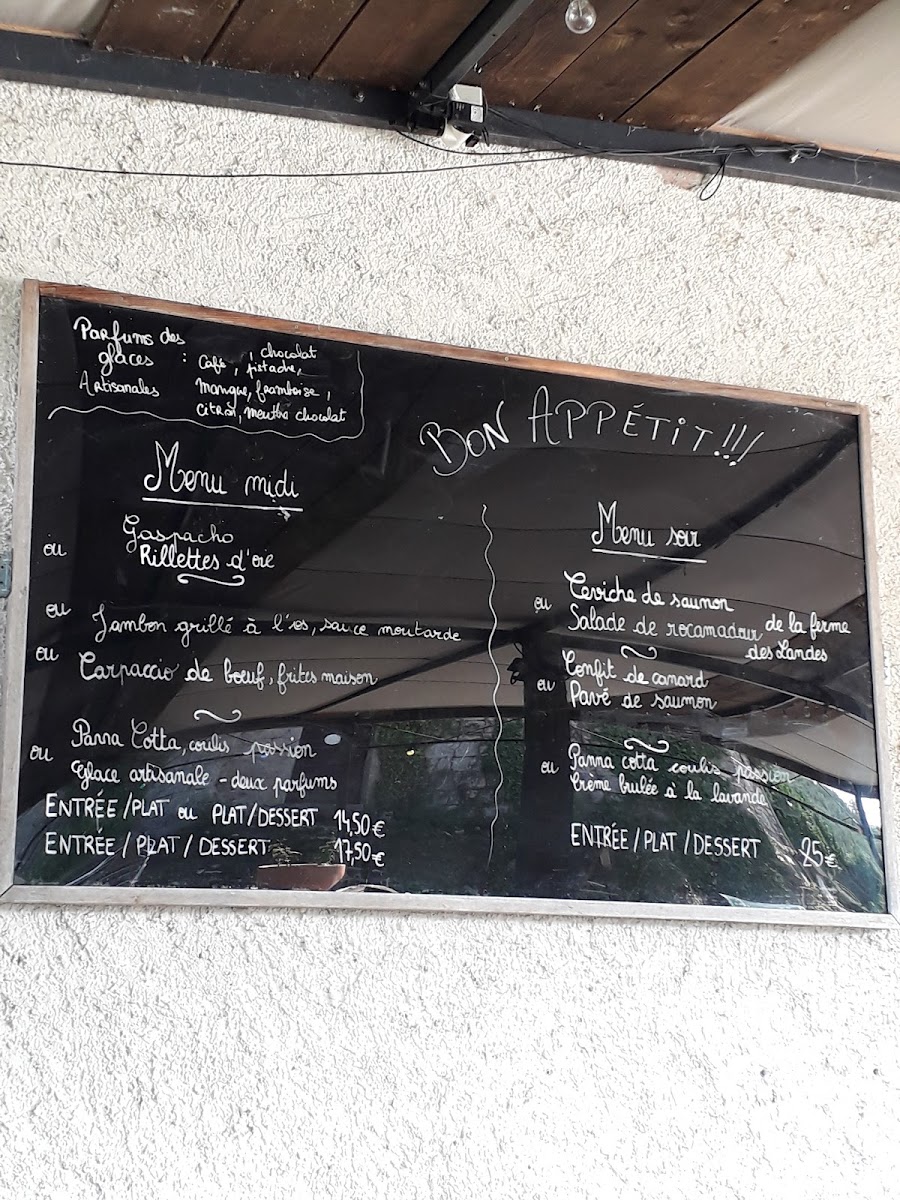 Parfums des
glaces :
Artisanales
Café, chocolat
pistache,
mangue, framboise,
citron, menthe chocolat
BON APPÉTIT!!!
Menu midi
Gaspacho
ou Rillettes d'oie
ou Jambon grillé à l'os, sauce moutarde
ou Carpaccio de boeuf, frites maison
Panna Cotta, coulis passion
ou Glace artisanale - deux parfums
ENTRÉE/PLAT ou PLAT/DESSERT 14,50€
ENTRÉE/PLAT/DESSERT 17,50€
Menu soir
Ceviche de saumon
ou Salade de rocamadour de la ferme
des Landes
Confit de canard
ou Pavé de saumon
Panna cotta coulis passion
ou Crème brulée à la lavande
ENTRÉE/PLAT/DESSERT 25€